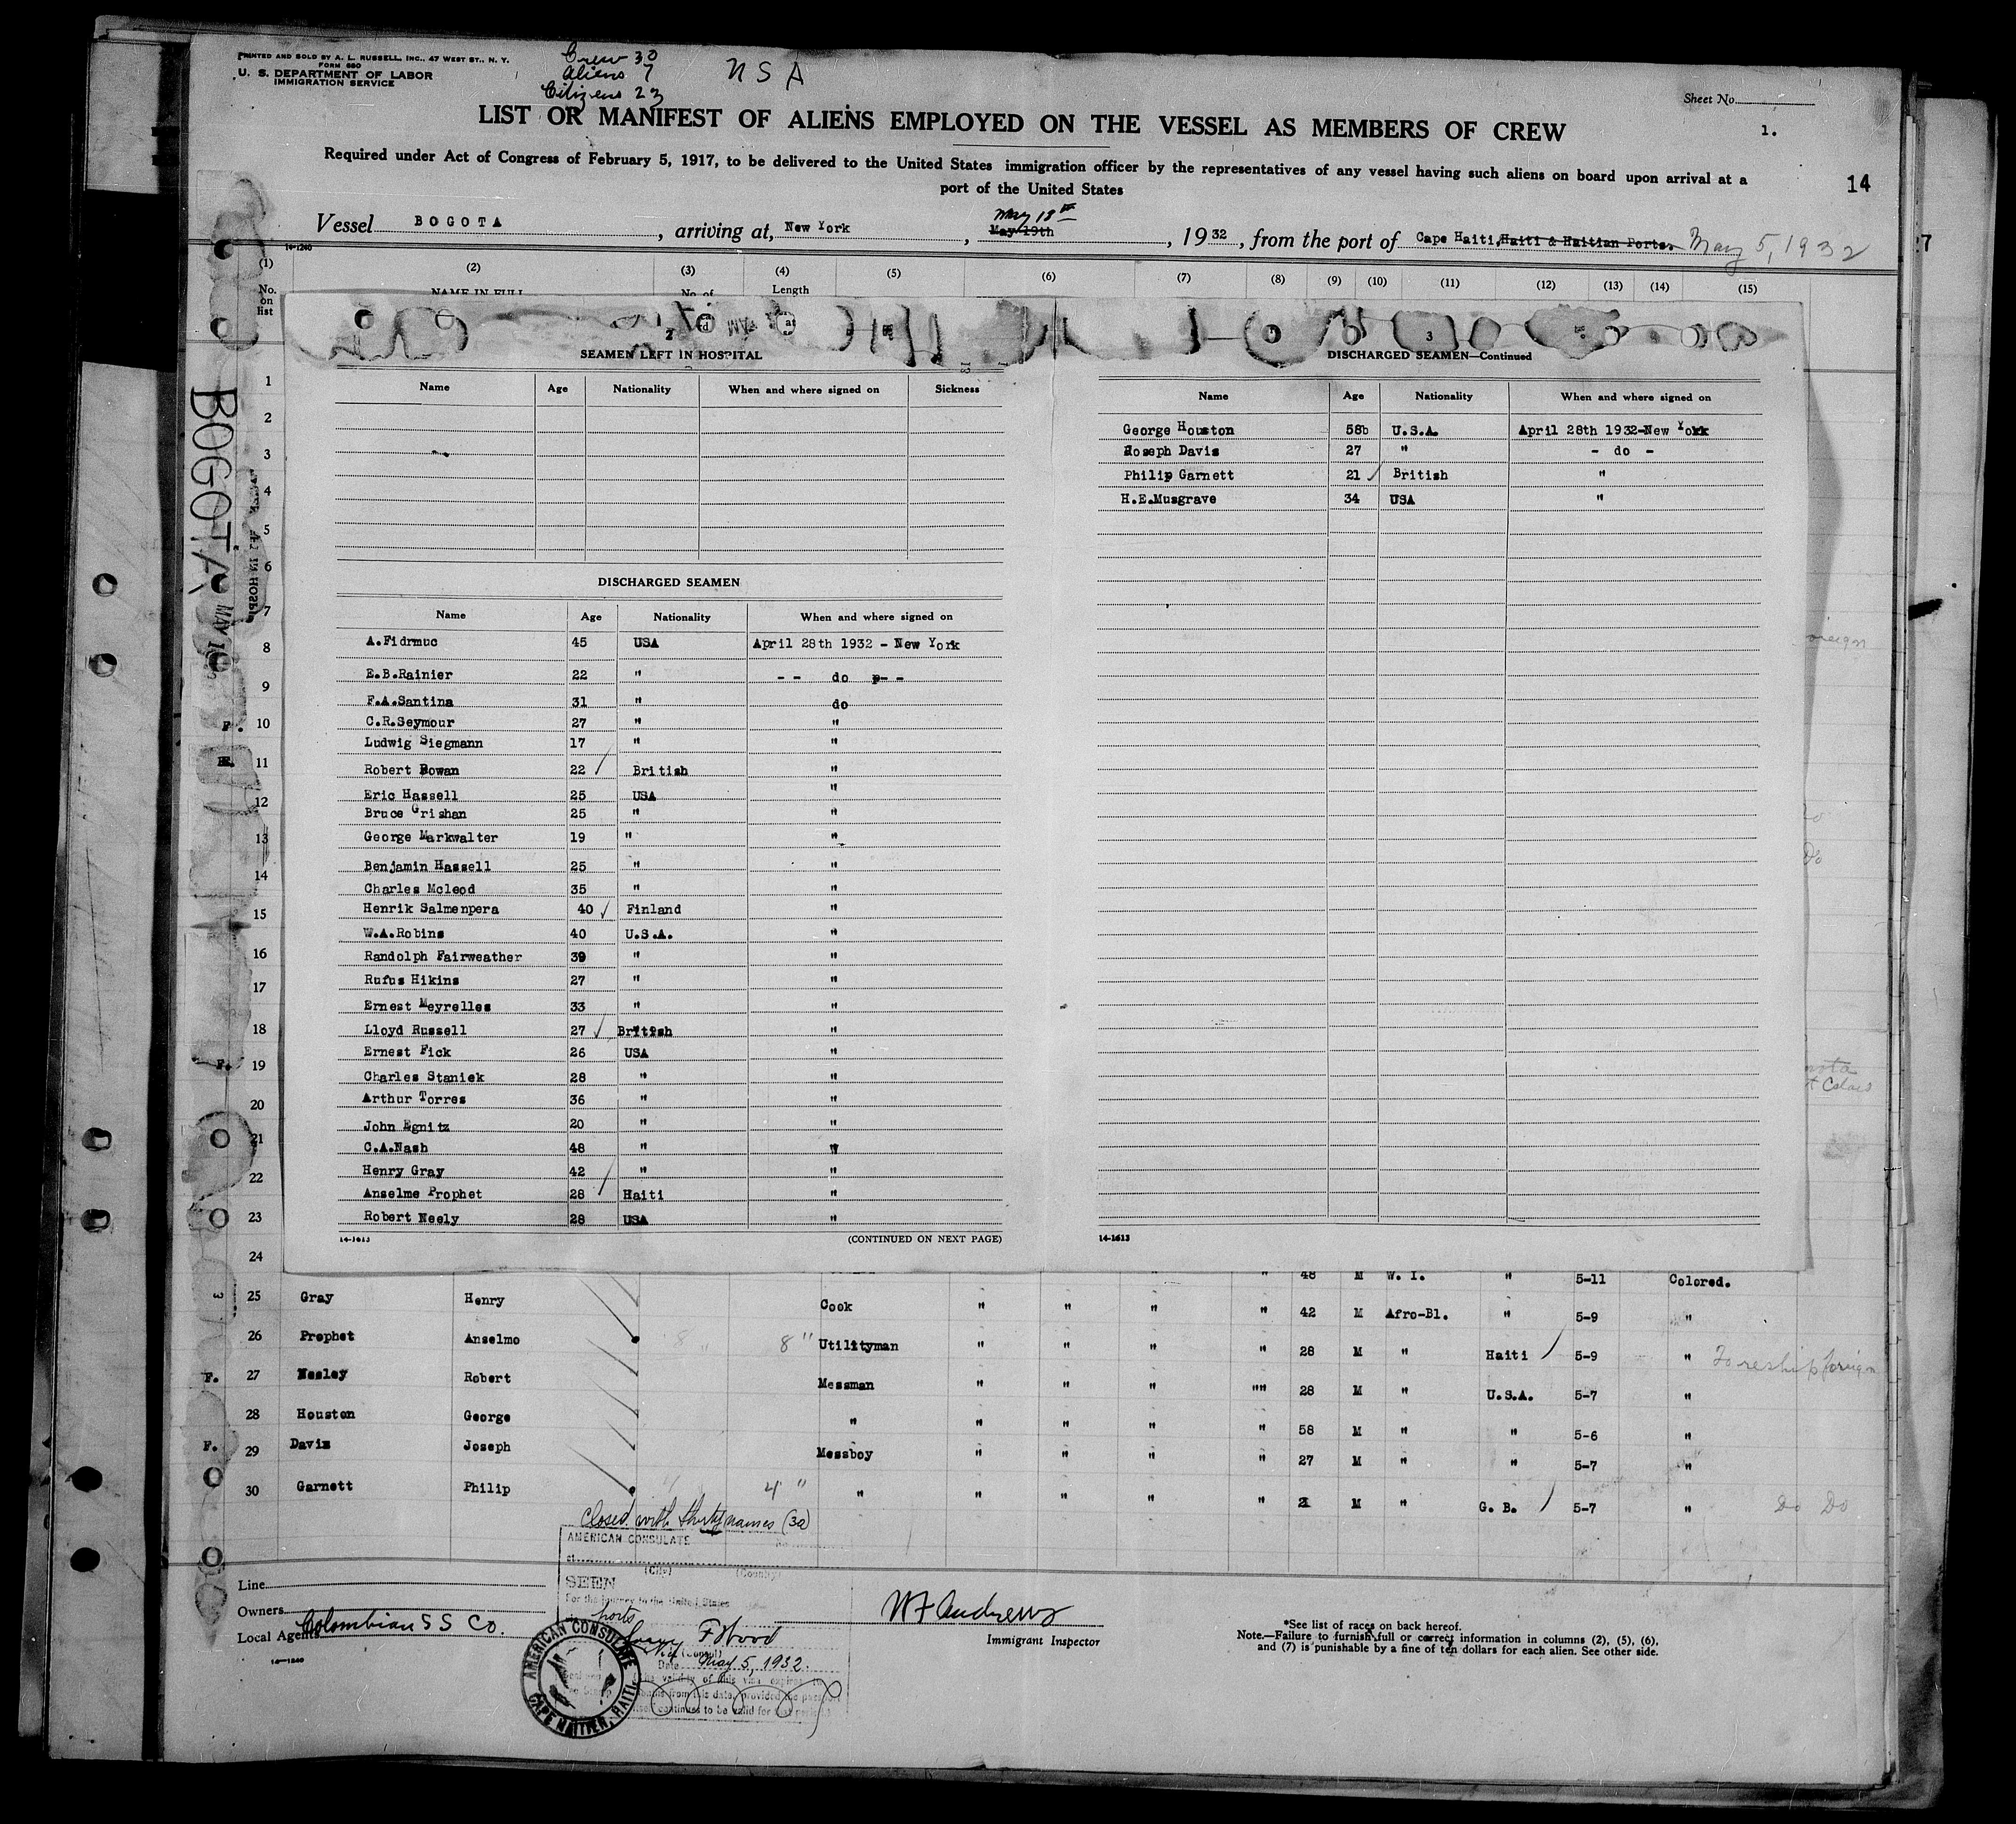 PRINTED AND SOLD BY A. L. RUSSELL, INC., 47 WEST ST., N. Y.
FORM 680
U. S. DEPARTMENT OF LABOR
IMMIGRATION SERVICE
Crew 30
Aliens 7
Citizens 23
Sheet No.
1.
LIST OR MANIFEST OF ALIENS EMPLOYED ON THE VESSEL AS MEMBERS OF CREW
Required under Act of Congress of February 5, 1917, to be delivered to the United States immigration officer by the representatives of any vessel having such aliens on board upon arrival at a
port of the United States
14
May 18th
Vessel BOGOTA, arriving at, New York, May 19th, 1932, from the port of Cape Haiti, Haiti & Haitian Ports. May 5, 1932
14-1240
(1) (2) (3) (4) (5) (6) (7) (8) (9) (10) (11) (12) (13) (14) (15)
No. on list NAME IN FULL No. of Length
BOGOTA
2
SEAMEN LEFT IN HOSPITAL
Name Age Nationality When and where signed on Sickness
DISCHARGED SEAMEN
Name Age Nationality When and where signed on
A.Fidrmuc 45 USA April 28th 1932 - New York
E.B.Rainier 22 " -- do p--
F.A.Santina 31 " do
C.R.Seymour 27 " "
Ludwig Siegmann 17 " "
Robert Rowan 22 British "
Eric Hassell 25 USA "
Bruce Grishan 25 " "
George Markwalter 19 " "
Benjamin Hassell 25 " "
Charles Mcleod 35 " "
Henrik Salmenpera 40 Finland "
W.A.Robins 40 U.S.A. "
Randolph Fairweather 39 " "
Rufus Hikins 27 " "
Ernest Meyrelles 33 " "
Lloyd Russell 27 British "
Ernest Fick 26 USA "
Charles Staniek 28 " "
Arthur Torres 36 " "
John Egnitz 20 " "
C.A.Nash 48 " "
Henry Gray 42 " "
Anselme Prophet 28 Haiti "
Robert Neely 28 USA "
14-1613
(CONTINUED ON NEXT PAGE)
3
DISCHARGED SEAMEN—Continued
Name Age Nationality When and where signed on
George Houston 58b U.S.A. April 28th 1932-New York
Joseph Davis 27 " - do -
Philip Garnett 21 British "
H.E.Musgrave 34 USA "
14-1613
1
2
3
4
5
6
7
8
9
F. 10
11
12
13
14
15
16
17
18
F. 19
20
21
22
23
24 " 48 M W. I. " 5-11 Colored.
25 Gray Henry Cook " " " " 42 M Afro-Bl. " 5-9 "
26 Prophet Anselmo 8 " Utilityman " " " " 28 M " Haiti 5-9 " To reship foreign
F. 27 Neeley Robert Messman " " " "" 28 M " U.S.A. 5-7 "
28 Houston George " " " " " 58 M " " 5-6 "
F. 29 Davis Joseph Messboy " " " " 27 M " " 5-7 "
30 Garnett Philip 4 " " " " " " 21 M " G. B. 5-7 " Do Do
Closed with thirty names (30)
AMERICAN CONSULATE
(City) (Country)
SEEN
For the journey to the United States
ports
Wood
(Consul)
Date May 5, 1932.
The validity of this visa expires
AMERICAN CONSULATE
CAPE HAITIEN, HAITI
Line
Owners
Local Agents Colombian S S Co.
14-1240
W F Andrews
Immigrant Inspector
*See list of races on back hereof.
Note.—Failure to furnish full or correct information in columns (2), (5), (6),
and (7) is punishable by a fine of ten dollars for each alien. See other side.